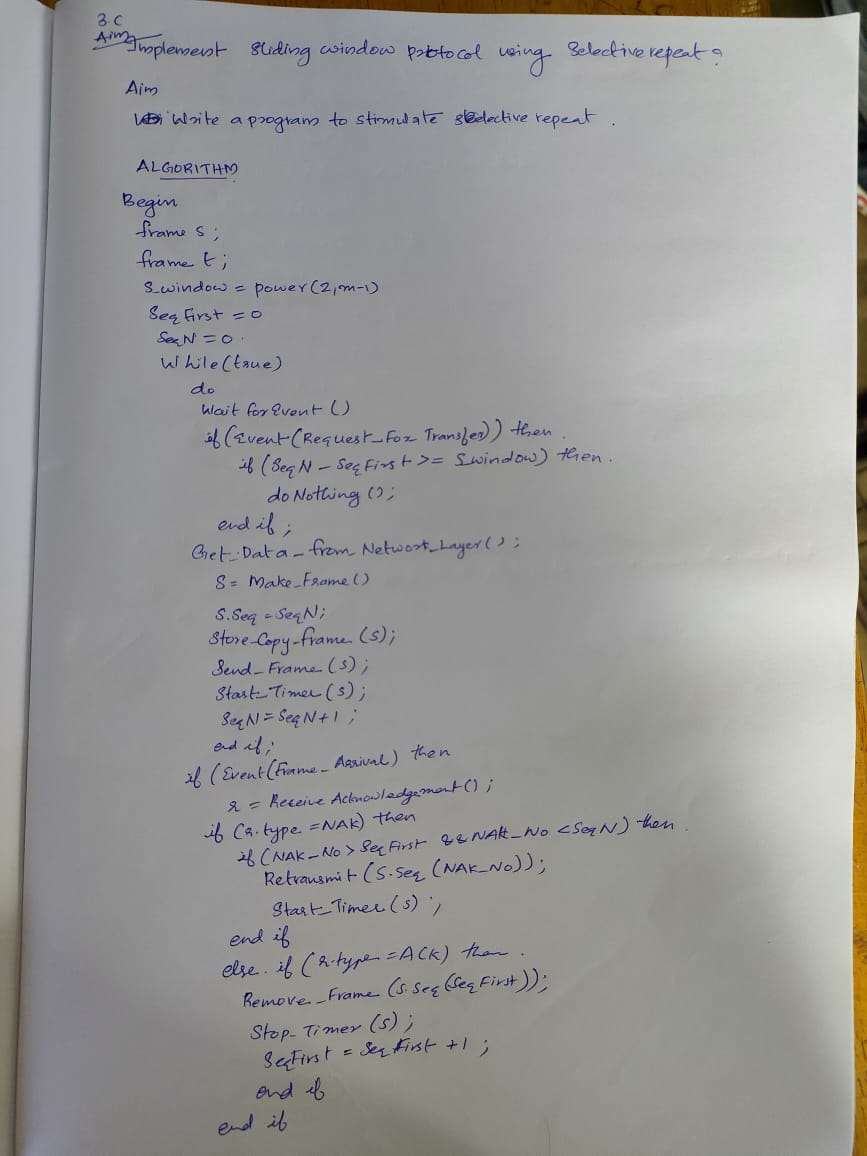 3.C
Aim
Implement Sliding window protocol using Selective repeat?
Aim
Write a program to stimulate selective repeat.
ALGORITHM
Begin
frame s;
frame t;
S_window = power(2,m-1)
SeqFirst = 0
SeqN = 0.
While(true)
do
Wait for Event ()
if (Event(Request_For Transfer)) then.
if (SeqN - SeqFirst >= Swindow) then.
do Nothing ();
end if;
Get_Data_from_Network_Layer();
S = Make_Frame()
S.Seq = SeqN;
Store_Copy_frame (s);
Send_Frame(s);
Start_Timer(s);
SeqN = SeqN+1;
end if;
if (Event(Frame_Arrival) then
r = Receive Acknowledgement();
if (r.type = NAK) then
if (NAK-No > SeqFirst && NAK_No < SeqN) then.
Retransmit (S.Seq (NAK_No));
Start_Timer(s);
end if
else.if (r.type = ACK) then.
Remove_Frame (S.Seq(SeqFirst));
Stop_Timer(s);
SeqFirst = SeqFirst +1;
end if
end if